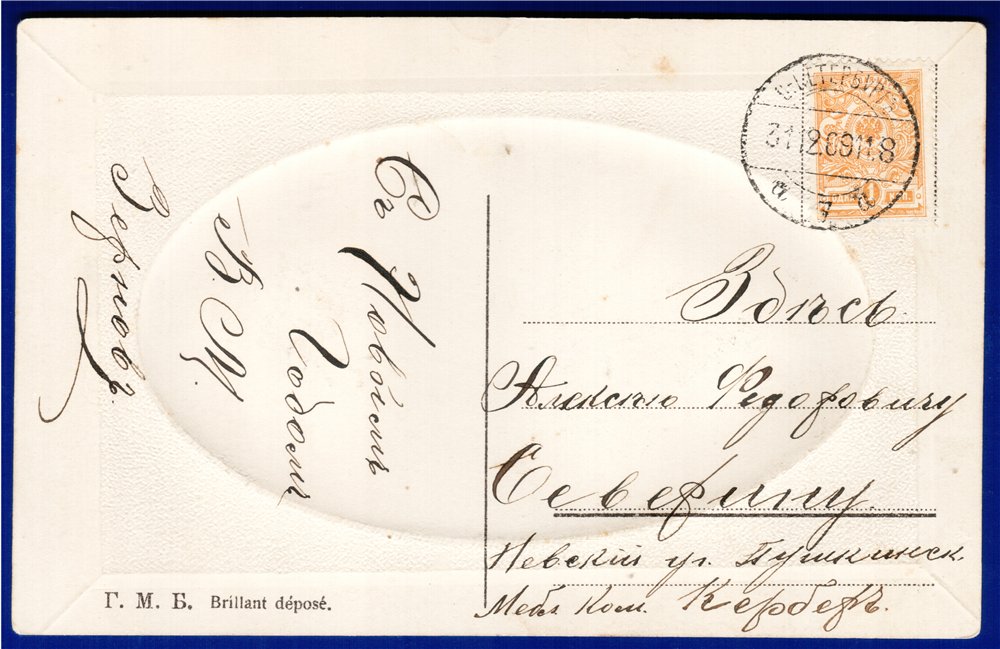 Съ Новымъ
Годомъ
В. М.
С-ПЕТЕРБУРГЪ
31 12 09 11-8
1
ОДНА КОП.
Здѣсь
Алексѣю Федоровичу
Северину.
Невскій уг. Пушкинск.
Мебл Ком. Керберъ.
Г. М. Б. Brillant déposé.